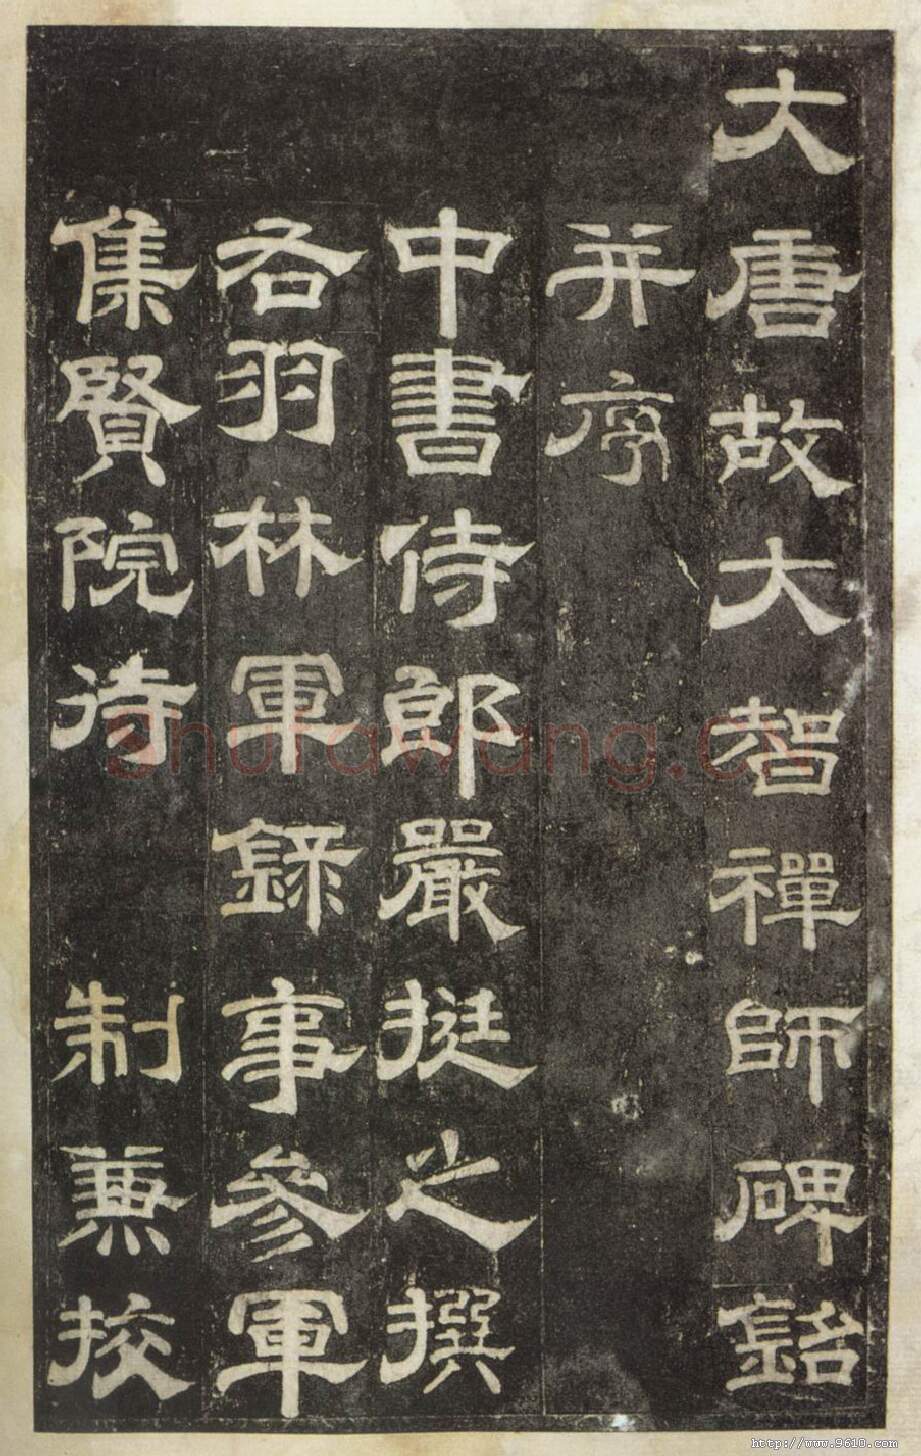 大唐故大智禪師碑銘
并序
中書侍郎嚴挺之撰
右羽林軍錄事參軍
集賢院待 制兼挍
shufawang.cn
http://www.9610.com